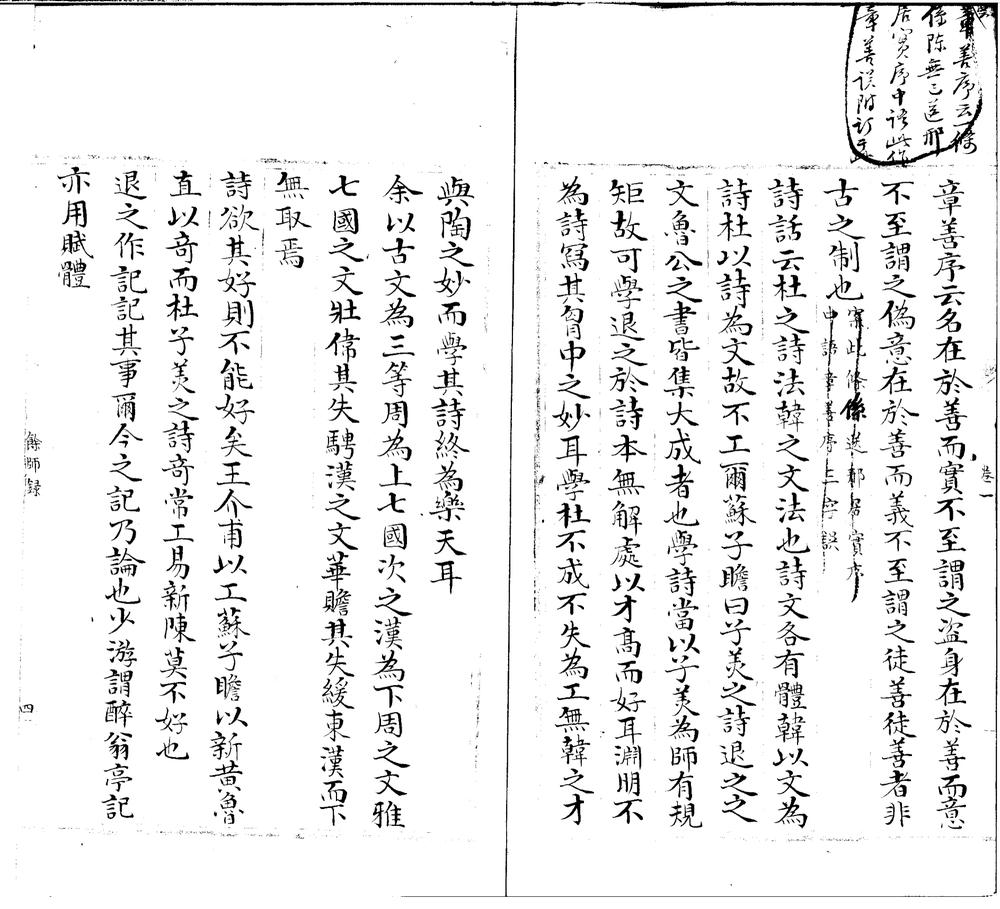 章善序云一條
係陈無己送邢
居實序中語此作
章善误附訂于此
章善序云名在於善而實不至謂之盗身在於善而意
不至謂之偽意在於善而義不至謂之徒善徒善者非
古之制也案此條係送邢居實序中語章善序三字誤
詩話云杜之詩法韓之文法也詩文各有體韓以文為
詩杜以詩為文故不工爾蘇子瞻曰子美之詩退之之
文魯公之書皆集大成者也學詩當以子美為師有規
矩故可學退之於詩本無解處以才高而好耳淵明不
為詩寫其胷中之妙耳學杜不成不失為工無韓之才
卷一
與陶之妙而學其詩終為樂天耳
余以古文為三等周為上七國次之漢為下周之文雅
七國之文壯偉其失騁漢之文華贍其失緩東漢而下
無取焉
詩欲其好則不能好矣王介甫以工蘇子瞻以新黄魯
直以奇而杜子美之詩奇常工易新陳莫不好也
退之作記記其事爾今之記乃論也少游謂醉翁亭記
亦用賦體
餘師録
四